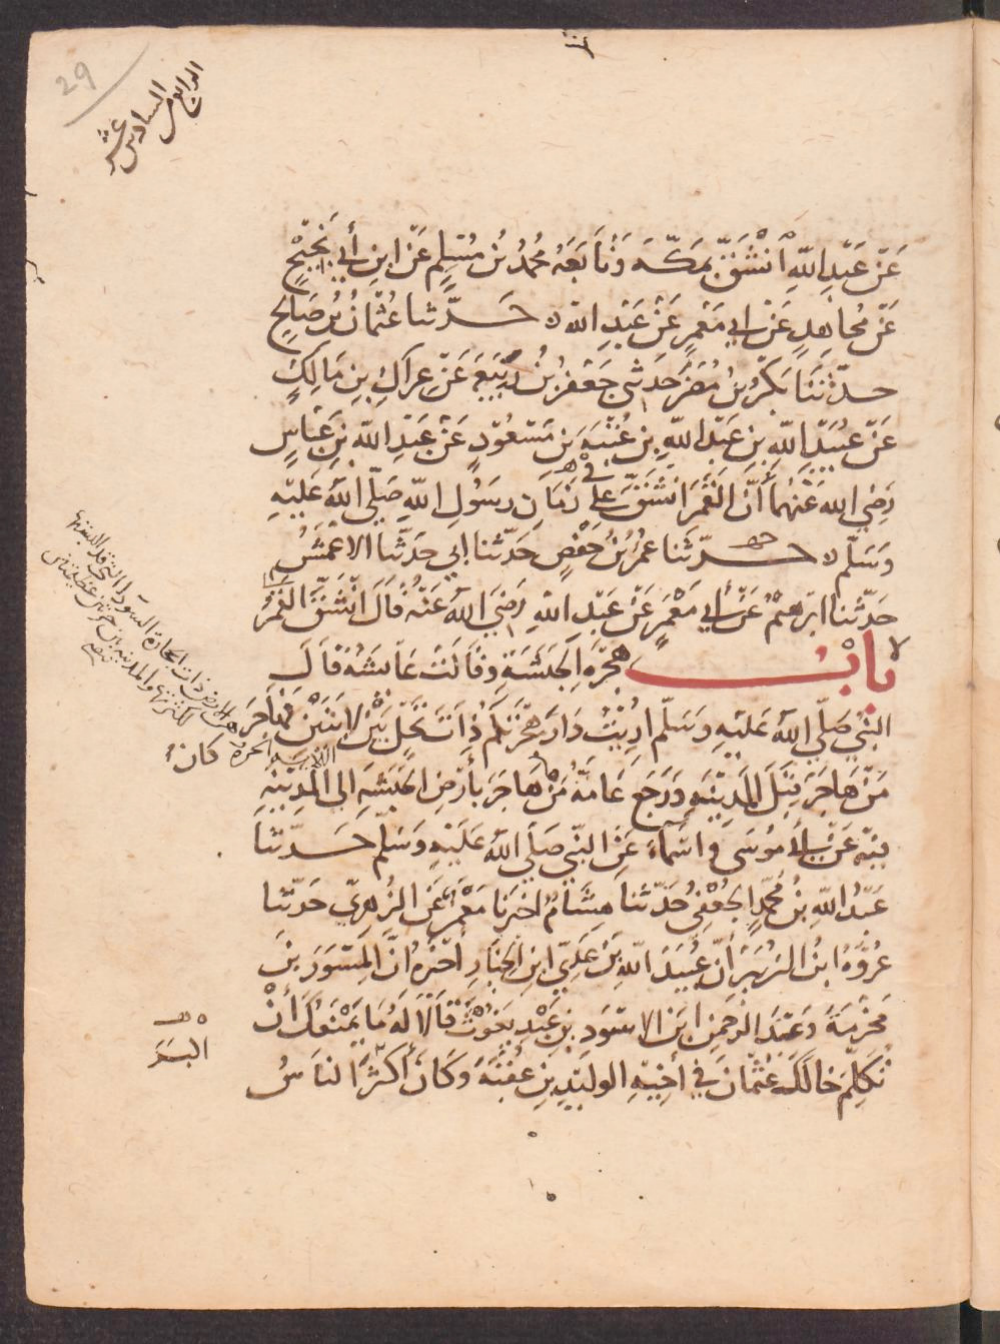 29
الرابع من
السادس عشر
عَنْ عَبْدِ اللّٰهِ انْشَقَّ بِمَكَّةَ وَتَابَعَهُ مُحَمَّدُ بْنُ مُسْلِمٍ عَنِ ابْنِ أَبِي نَجِيْحٍ
عَنْ مُجَاهِدٍ عَنْ ابي مَعْمَرٍ عَنْ عَبْدِ اللّٰه ۵ حَدَّثنا عُثْمَانُ بْنُ صَالِحٍ
حدّثَنَا بَكْرُ بْنُ مُضَرَ حَدثني جَعْفَرُ بْنُ رَبِيْعَةَ عَنْ عِرَاكِ بْنِ مَالِكٍ
عَنْ عُبَيْدِ اللّٰهِ بنِ عَبْدِ اللّٰهِ بنِ عُتْبَةَ بنِ مَسْعُوْدٍ عَنْ عَبْدِ اللّٰهِ بْنِ عَبَّاسٍ
رَضِيَ اللهُ عَنْهُمَا أَنَّ القَمَرَ انْشَقَّ عَلَى زَمَانِ رسَوُلِ اللّٰهِ صَلّى اللهُ عَلَيْهِ
في
وَسَلّم ۵ حدّثَنا عُمَرُ بْنُ حَفْصٍ حَدّثنا ابي حَدّثنا الاعْمَشُ
حَدّثنا ابْرهيْمُ عَنْ أَبي مَعْمَرٍ عَنْ عَبْدِ اللّٰهِ رَضِيَ اللّٰهُ عَنْهُ قَالَ انْشَقَّ القَمَرُ
بَابُ هِجْرَةِ الحَبَشَةِ وقَالَتْ عَائشَةُ قَالَ
النَّبِي صَلّي اللهُ عَلَيْهِ وَسَلّم ارِيْتُ دَارَ هِجْرَتِكُمْ ذَاتَ نَخْلٍ بَيْنَ لابَتَيْنِ فهَاجَرَ
مَنْ هَاجَرَ قِبَلَ المَدِيْنَةِ وَرَجَعَ عَامَّةُ مَنْ هَاجَرَ بأَرْضِ الحَبَشَةِ الى المَدِيْنَةِ
فيْهِ عَنْ أَبي مُوسَى وَاسْمَاءَ عَنِ النَّبِي صَلّي اللهُ عَلَيْهِ وَسَلّم حَدّثنا
عَبْدُ اللّٰهِ بْنُ مُحَمّدٍ الجُعْفِيُّ حَدّثنا هِشَامٌ اخبرنا مَعْمَرٌ عَنِ الزُّهْرِيِّ حَدّثنا
عُرْوَةُ ابنُ الزُّبَيْرِ أَنَّ عُبَيْدَ اللّٰهِ بْنَ عَدِيِّ ابنِ الخِيَارِ أخْبَرَهُ انَّ المِسْوَرَ بْنَ
مَخْرَمَةَ وَعَبْدَ الرَّحْمنِ ابْنَ الاسْوَدِ بنِ عَبْدِ يَغُوْثَ قَالَا لَهُ مَا يَمْنَعُكَ أَنْ
تُكَلِّمَ خَالَكَ عُثْمَانَ في أخِيْهِ الوليْدِ بْنِ عُقْبَةَ وَكَانَ أَكْثَرَ النَّاسُ